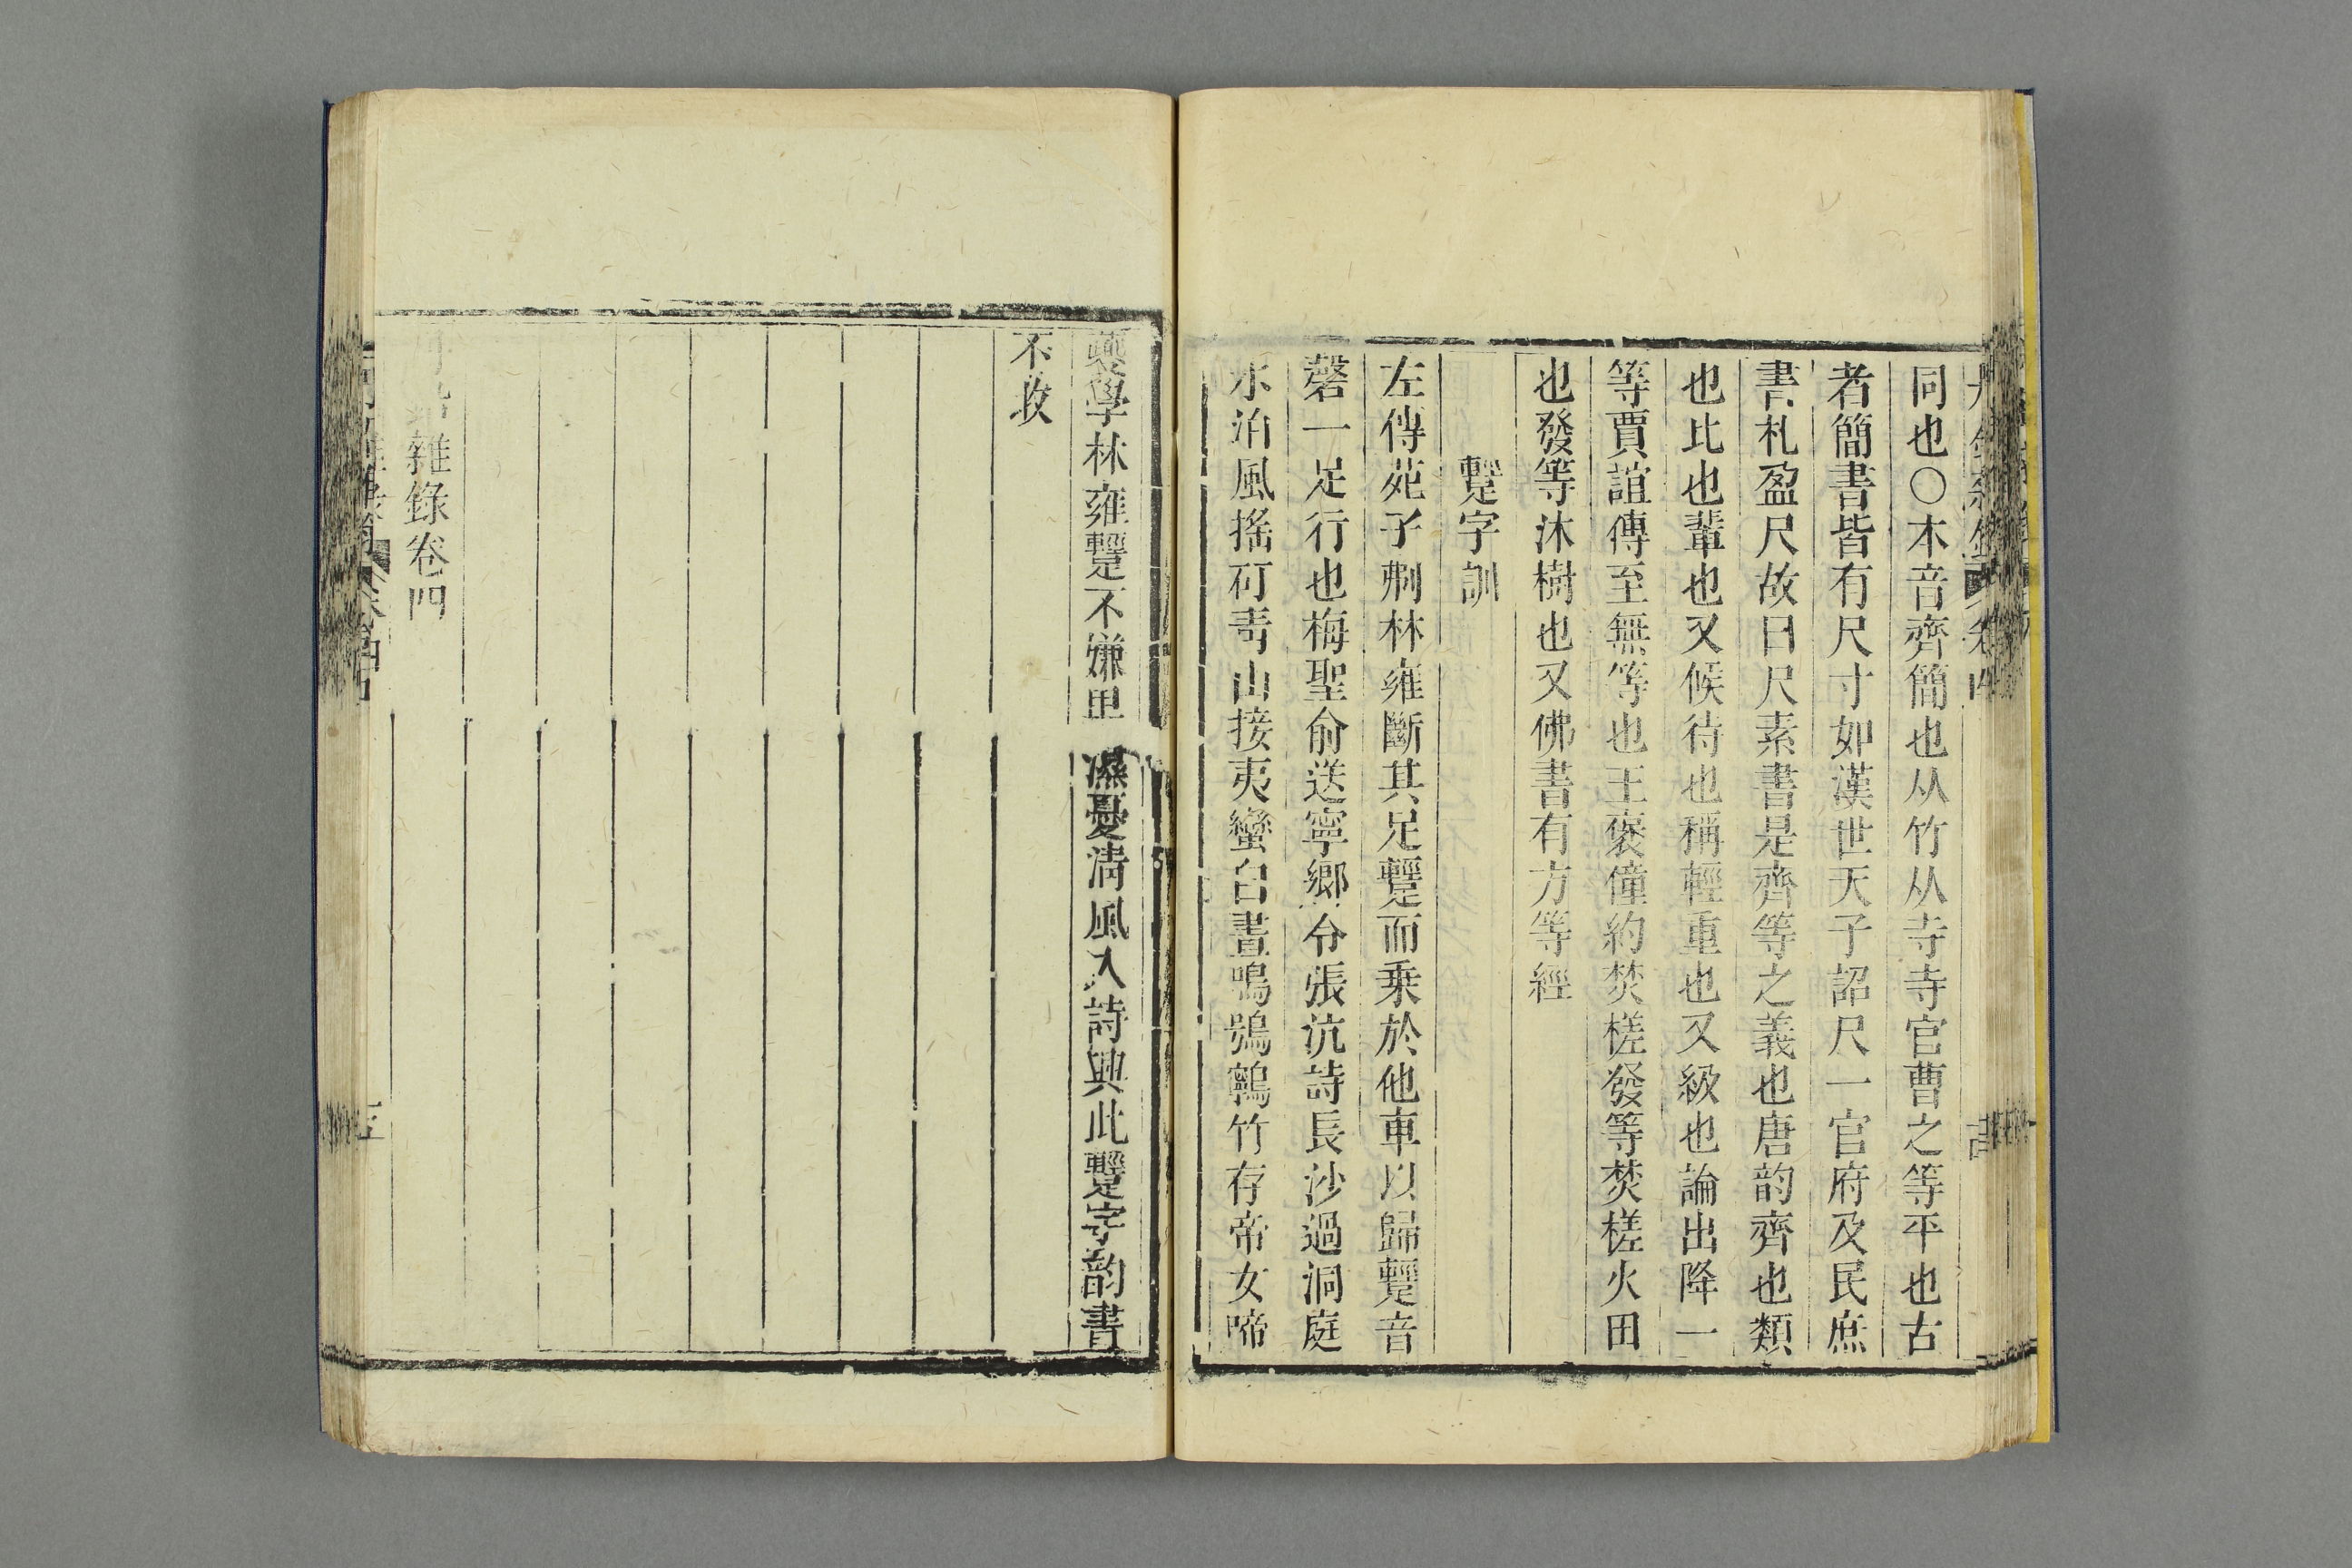 同也〇本音齊簡也从竹从寺寺官曹之等平也古
者簡書皆有尺寸如漢世天子詔尺一官府及民庶
書札盈尺故曰尺素書是齊等之義也唐韵齊也類
也比也輩也又候待也也稱輕重也又級也論出降一
等賈誼傳至無等也王褒僮約焚槎發等焚槎火田
也發等沐樹也又佛書有方等經
䠂字訓
左傳苑子刜林雍斷其足䠂而乗於他車以歸䠂音
磬一足行也梅聖俞送寧鄉令張沆詩長沙過洞庭
水泊風摇矴靑山接夷蠻白晝鳴鵶鸖竹存帝女啼
夔學林雍䠂不嫌卑濕憂清風入詩興此䠂字韵書
不收
雜錄卷四